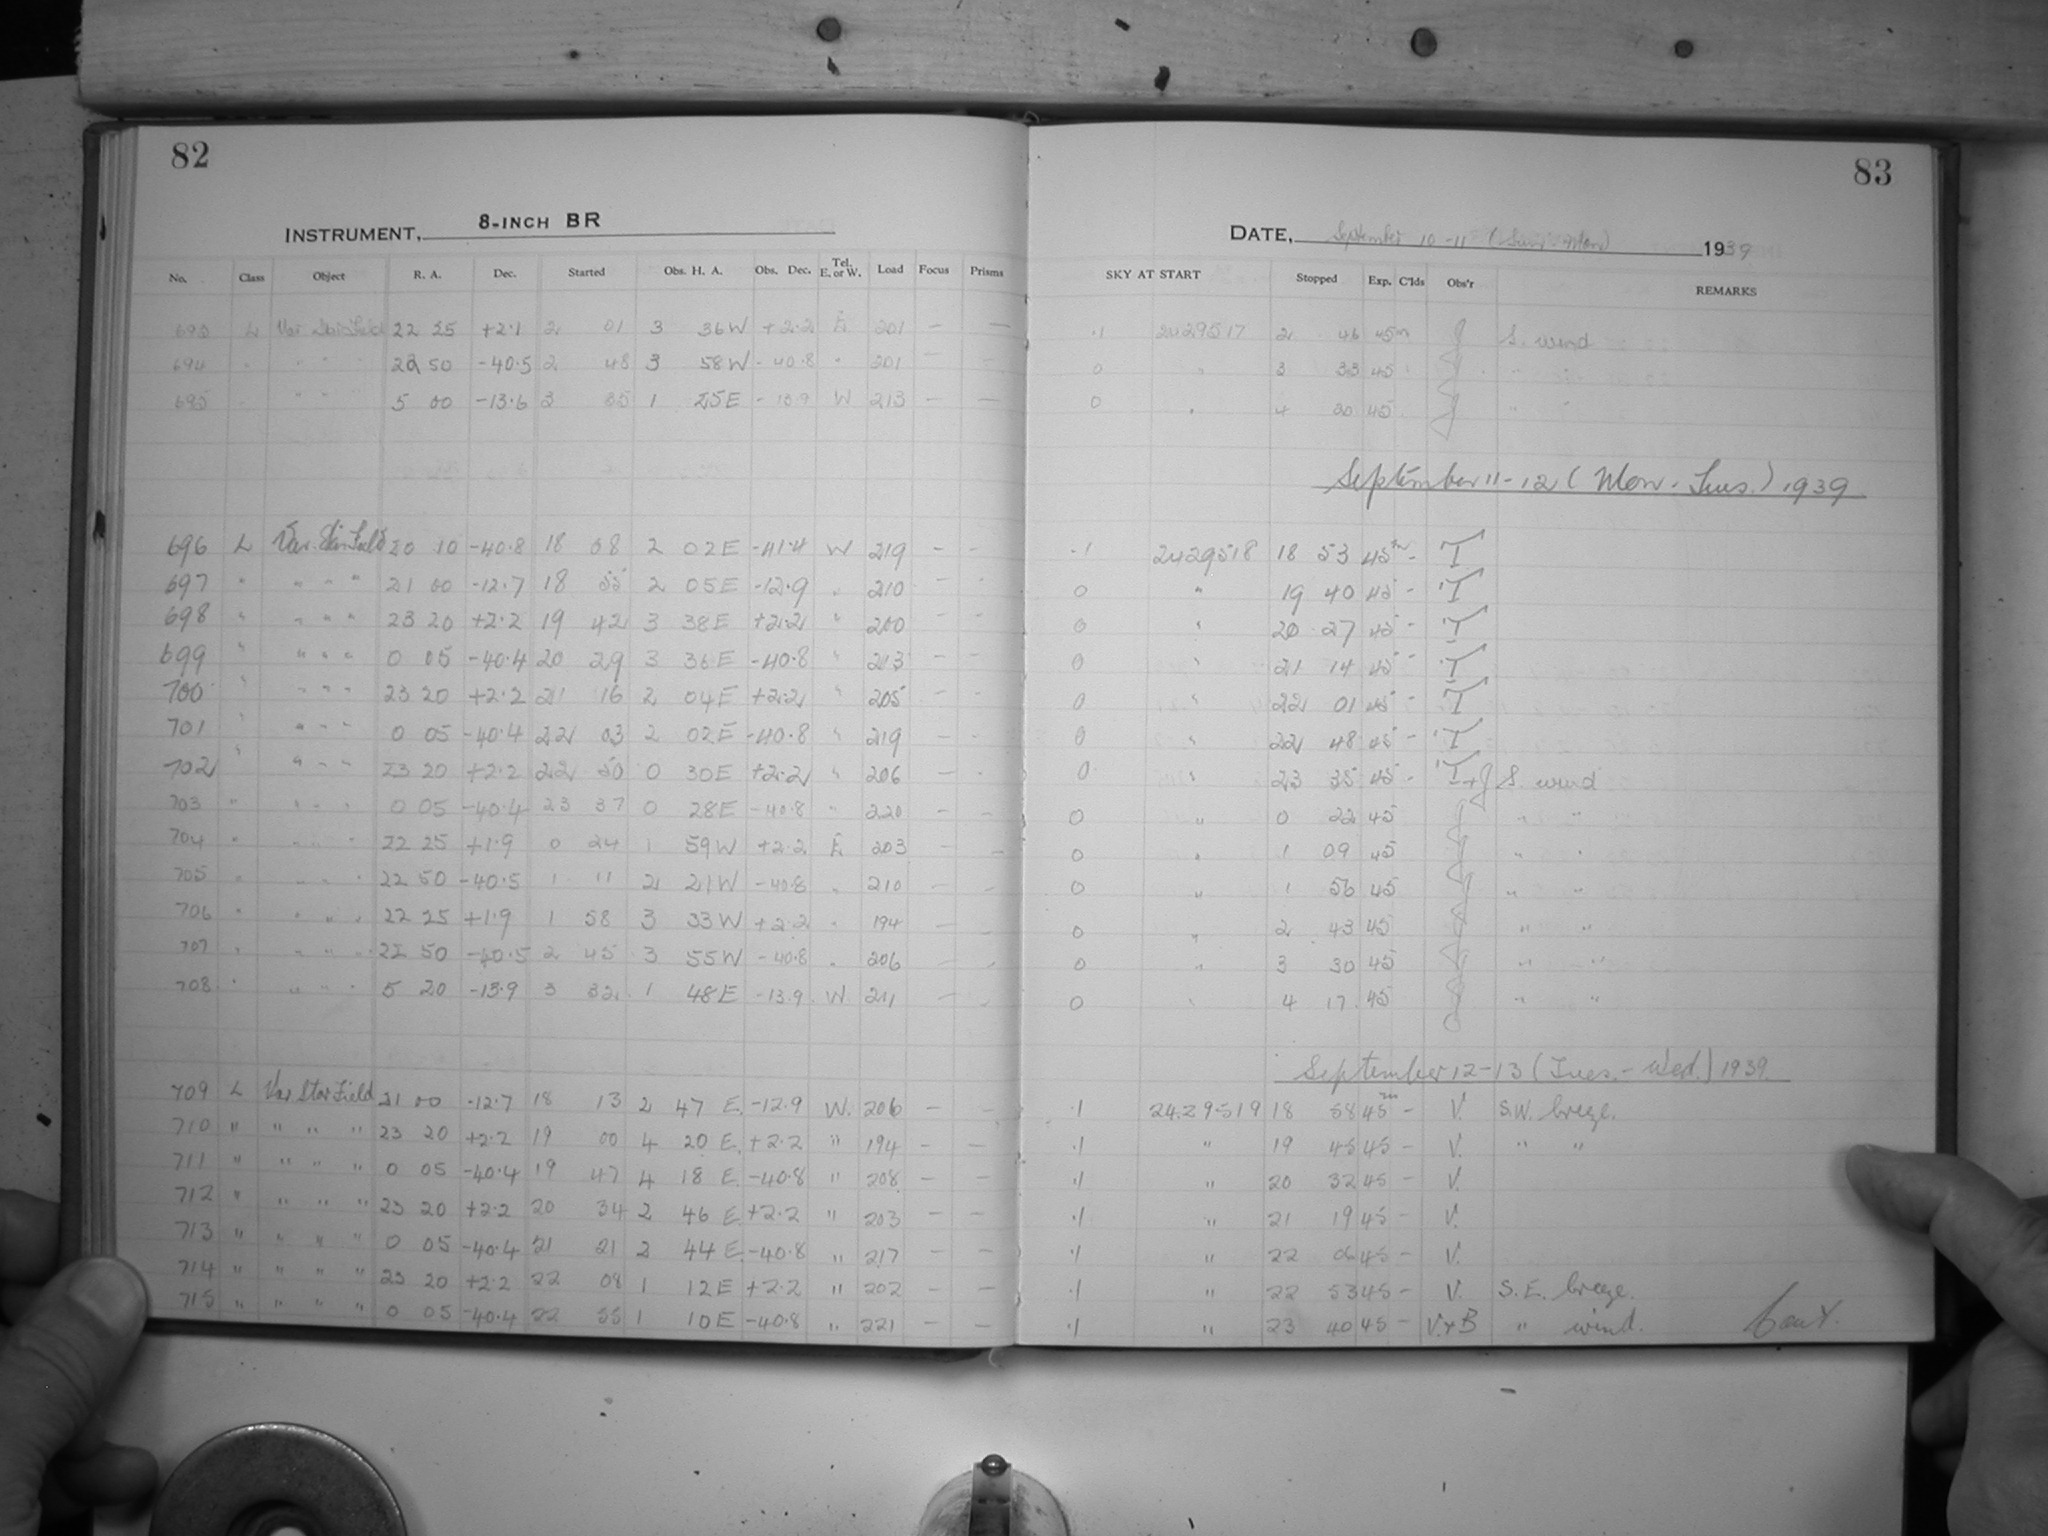 82
83
INSTRUMENT, 8-INCH BR
DATE, September 10-11 (Sun.-Mon) 1939
No. Class Object R. A. Dec. Started Obs. H. A. Obs. Dec. Tel. E. or W. Load Focus Prisms SKY AT START Stopped Exp. C'lds Obs'r REMARKS
693 L Var Star Field 22 25 +2.1 2 01 3 36W +2.2 E 201 — — .1 2429517 2 46 45m J S. wind
694 " " " 22 50 -40.5 2 48 3 58W -40.8 " 201 — 0 " 3 33 45 " "
695 " " " 5 00 -13.6 3 35 1 25E -13.9 W 213 — — 0 " 4 20 45 " "
September 11-12 (Mon.-Tues.) 1939
696 L Var. Star Field 20 10 -40.8 18 08 2 02E -41.4 W 219 - - .1 2429518 18 53 45m - T
697 " " " " 21 00 -12.7 18 55 2 05E -12.9 " 210 - - 0 " 19 40 45 - T
698 " " " " 23 20 +2.2 19 42 3 38E +2.2 " 200 - - 0 " 20 27 45 - T
699 " " " " 0 05 -40.4 20 29 3 36E -40.8 " 213 - - 0 " 21 14 45 - T
700 " " " " 23 20 +2.2 21 16 2 04E +2.2 " 205 - - 0 " 22 01 45 - T
701 " " " " 0 05 -40.4 22 03 2 02E -40.8 " 219 - - 0 " 22 48 45 - T
702 " " " " 23 20 +2.2 22 50 0 30E +2.2 " 206 - - 0 " 23 35 45 - T+J S. wind
703 " " " " 0 05 -40.4 23 37 0 28E -40.8 " 220 — — 0 " 0 22 45 " "
704 " " " " 22 25 +1.9 0 24 1 59W +2.2 E 203 — — 0 " 1 09 45 " "
705 " " " " 22 50 -40.5 1 11 2 21W -40.8 " 210 — — 0 " 1 56 45 " "
706 " " " " 22 25 +1.9 1 58 3 33W +2.2 " 194 — — 0 " 2 43 45 " "
707 " " " " 22 50 -40.5 2 45 3 55W -40.8 " 206 — — 0 " 3 30 45 " "
708 " " " " 5 20 -13.9 3 32 1 48E -13.9 W. 211 — — 0 " 4 17 45 " "
September 12-13 (Tues.-Wed.) 1939.
709 L Var Star Field 21 00 -12.7 18 13 2 47 E. -12.9 W. 206 — — .1 2429519 18 58 45m — V. S.W. breeze.
710 " " " " 23 20 +2.2 19 00 4 20 E. +2.2 " 194 — — .1 " 19 45 45 — V. " "
711 " " " " 0 05 -40.4 19 47 4 18 E. -40.8 " 208 — — .1 " 20 32 45 — V.
712 " " " " 23 20 +2.2 20 34 2 46 E. +2.2 " 203 — — .1 " 21 19 45 — V.
713 " " " " 0 05 -40.4 21 21 2 44 E. -40.8 " 217 — — .1 " 22 06 45 — V.
714 " " " " 23 20 +2.2 22 08 1 12E +2.2 " 202 — — .1 " 22 53 45 — V. S. E. breeze.
715 " " " " 0 05 -40.4 22 55 1 10E -40.8 " 221 — — .1 " 23 40 45 — V.+B " wind. Cont.